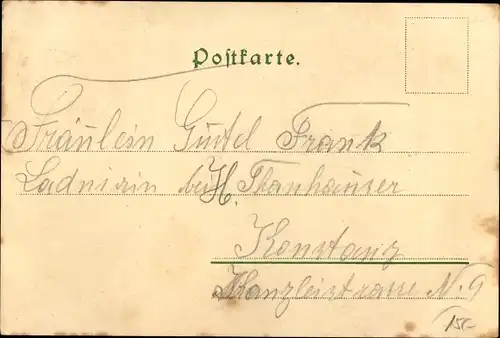 Postkarte.
Fräulein Gustel Frank
Ladnerin bei H. Thanhauser
Konstanz
Kanzleistrasse N. 9